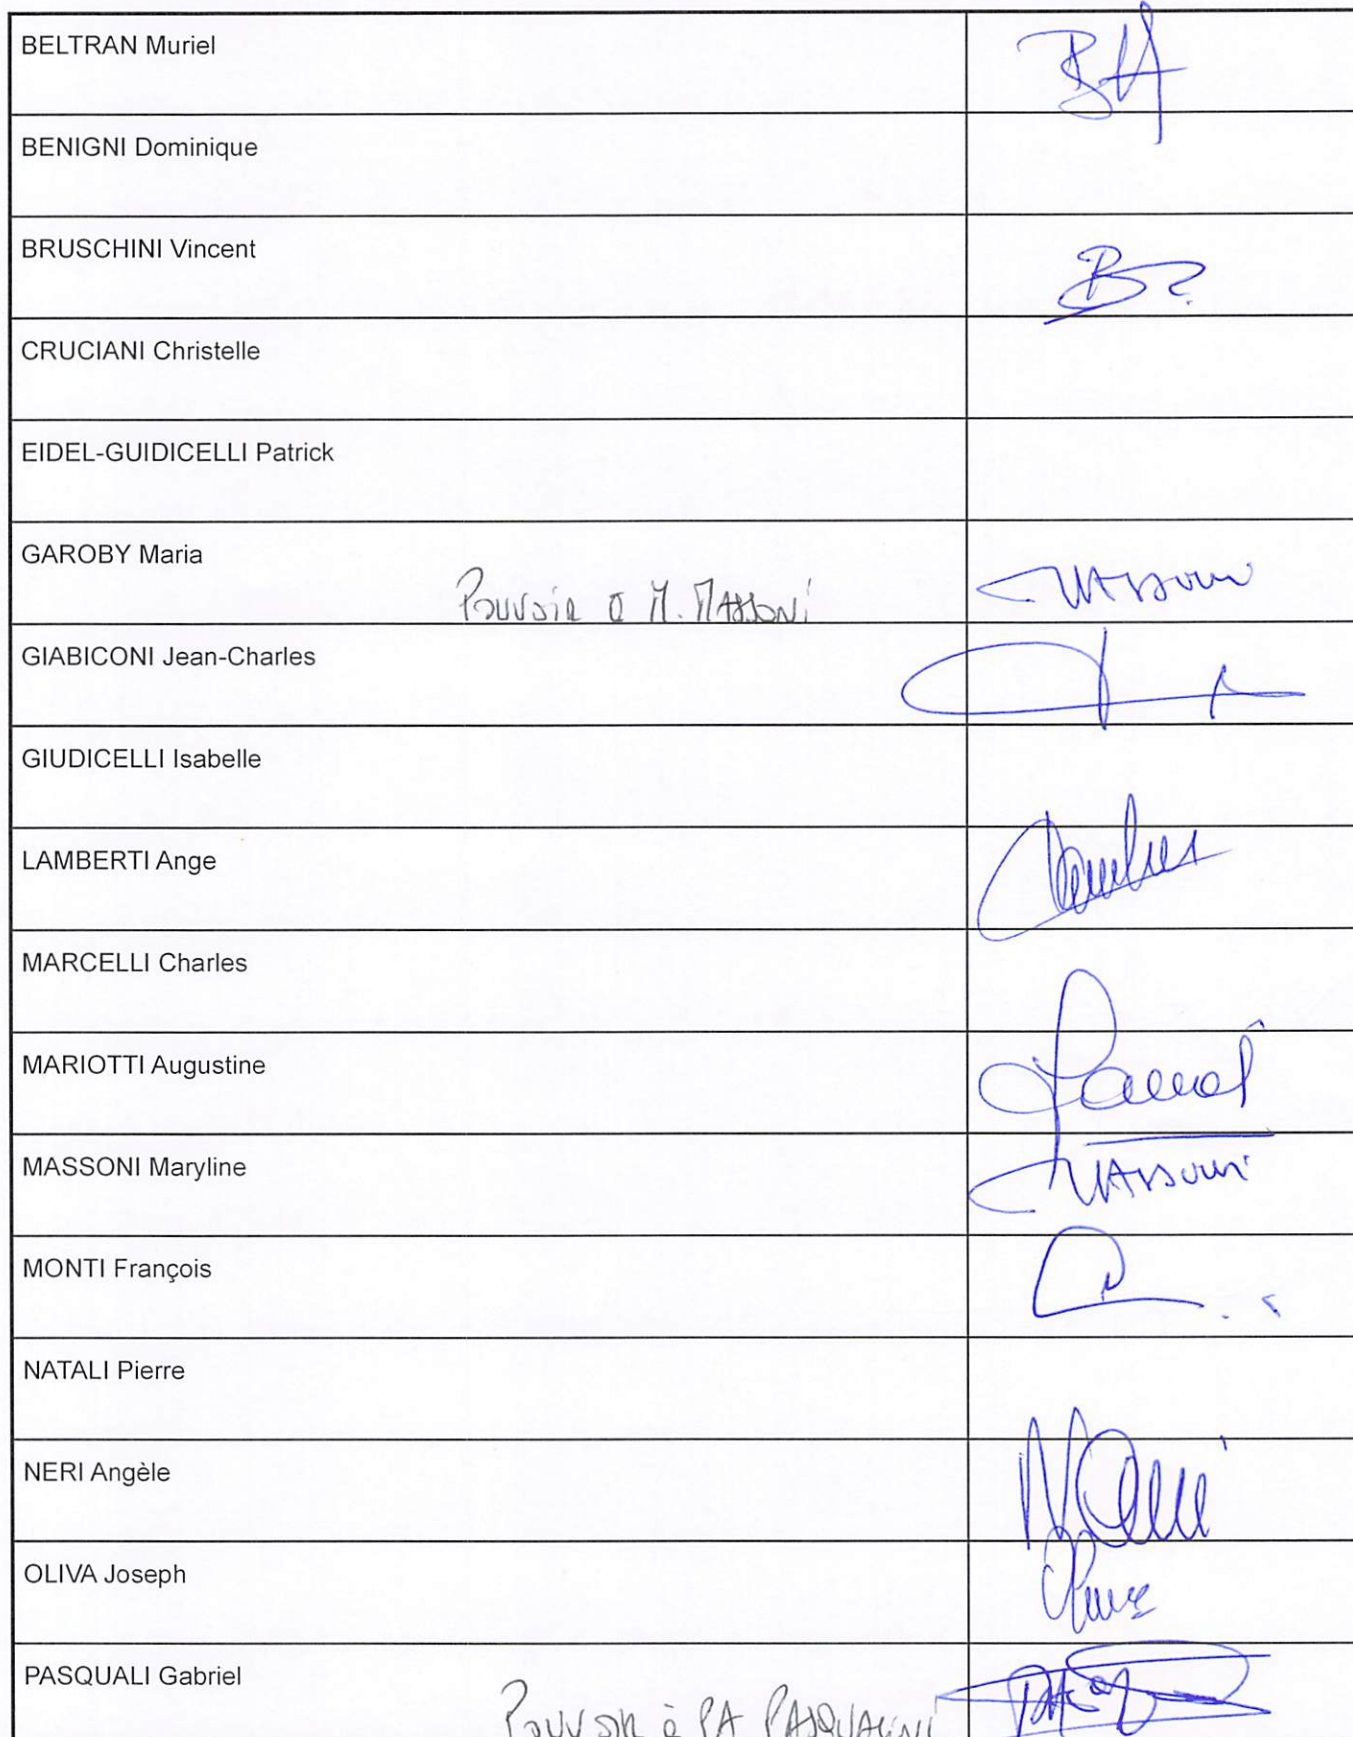 BELTRAN Muriel
BENIGNI Dominique
BRUSCHINI Vincent
CRUCIANI Christelle
EIDEL-GUIDICELLI Patrick
GAROBY Maria
Pouvoir à M. MASSONI
GIABICONI Jean-Charles
GIUDICELLI Isabelle
LAMBERTI Ange
MARCELLI Charles
MARIOTTI Augustine
MASSONI Maryline
MONTI François
NATALI Pierre
NERI Angèle
OLIVA Joseph
PASQUALI Gabriel
Pouvoir à PA PASQUALINI